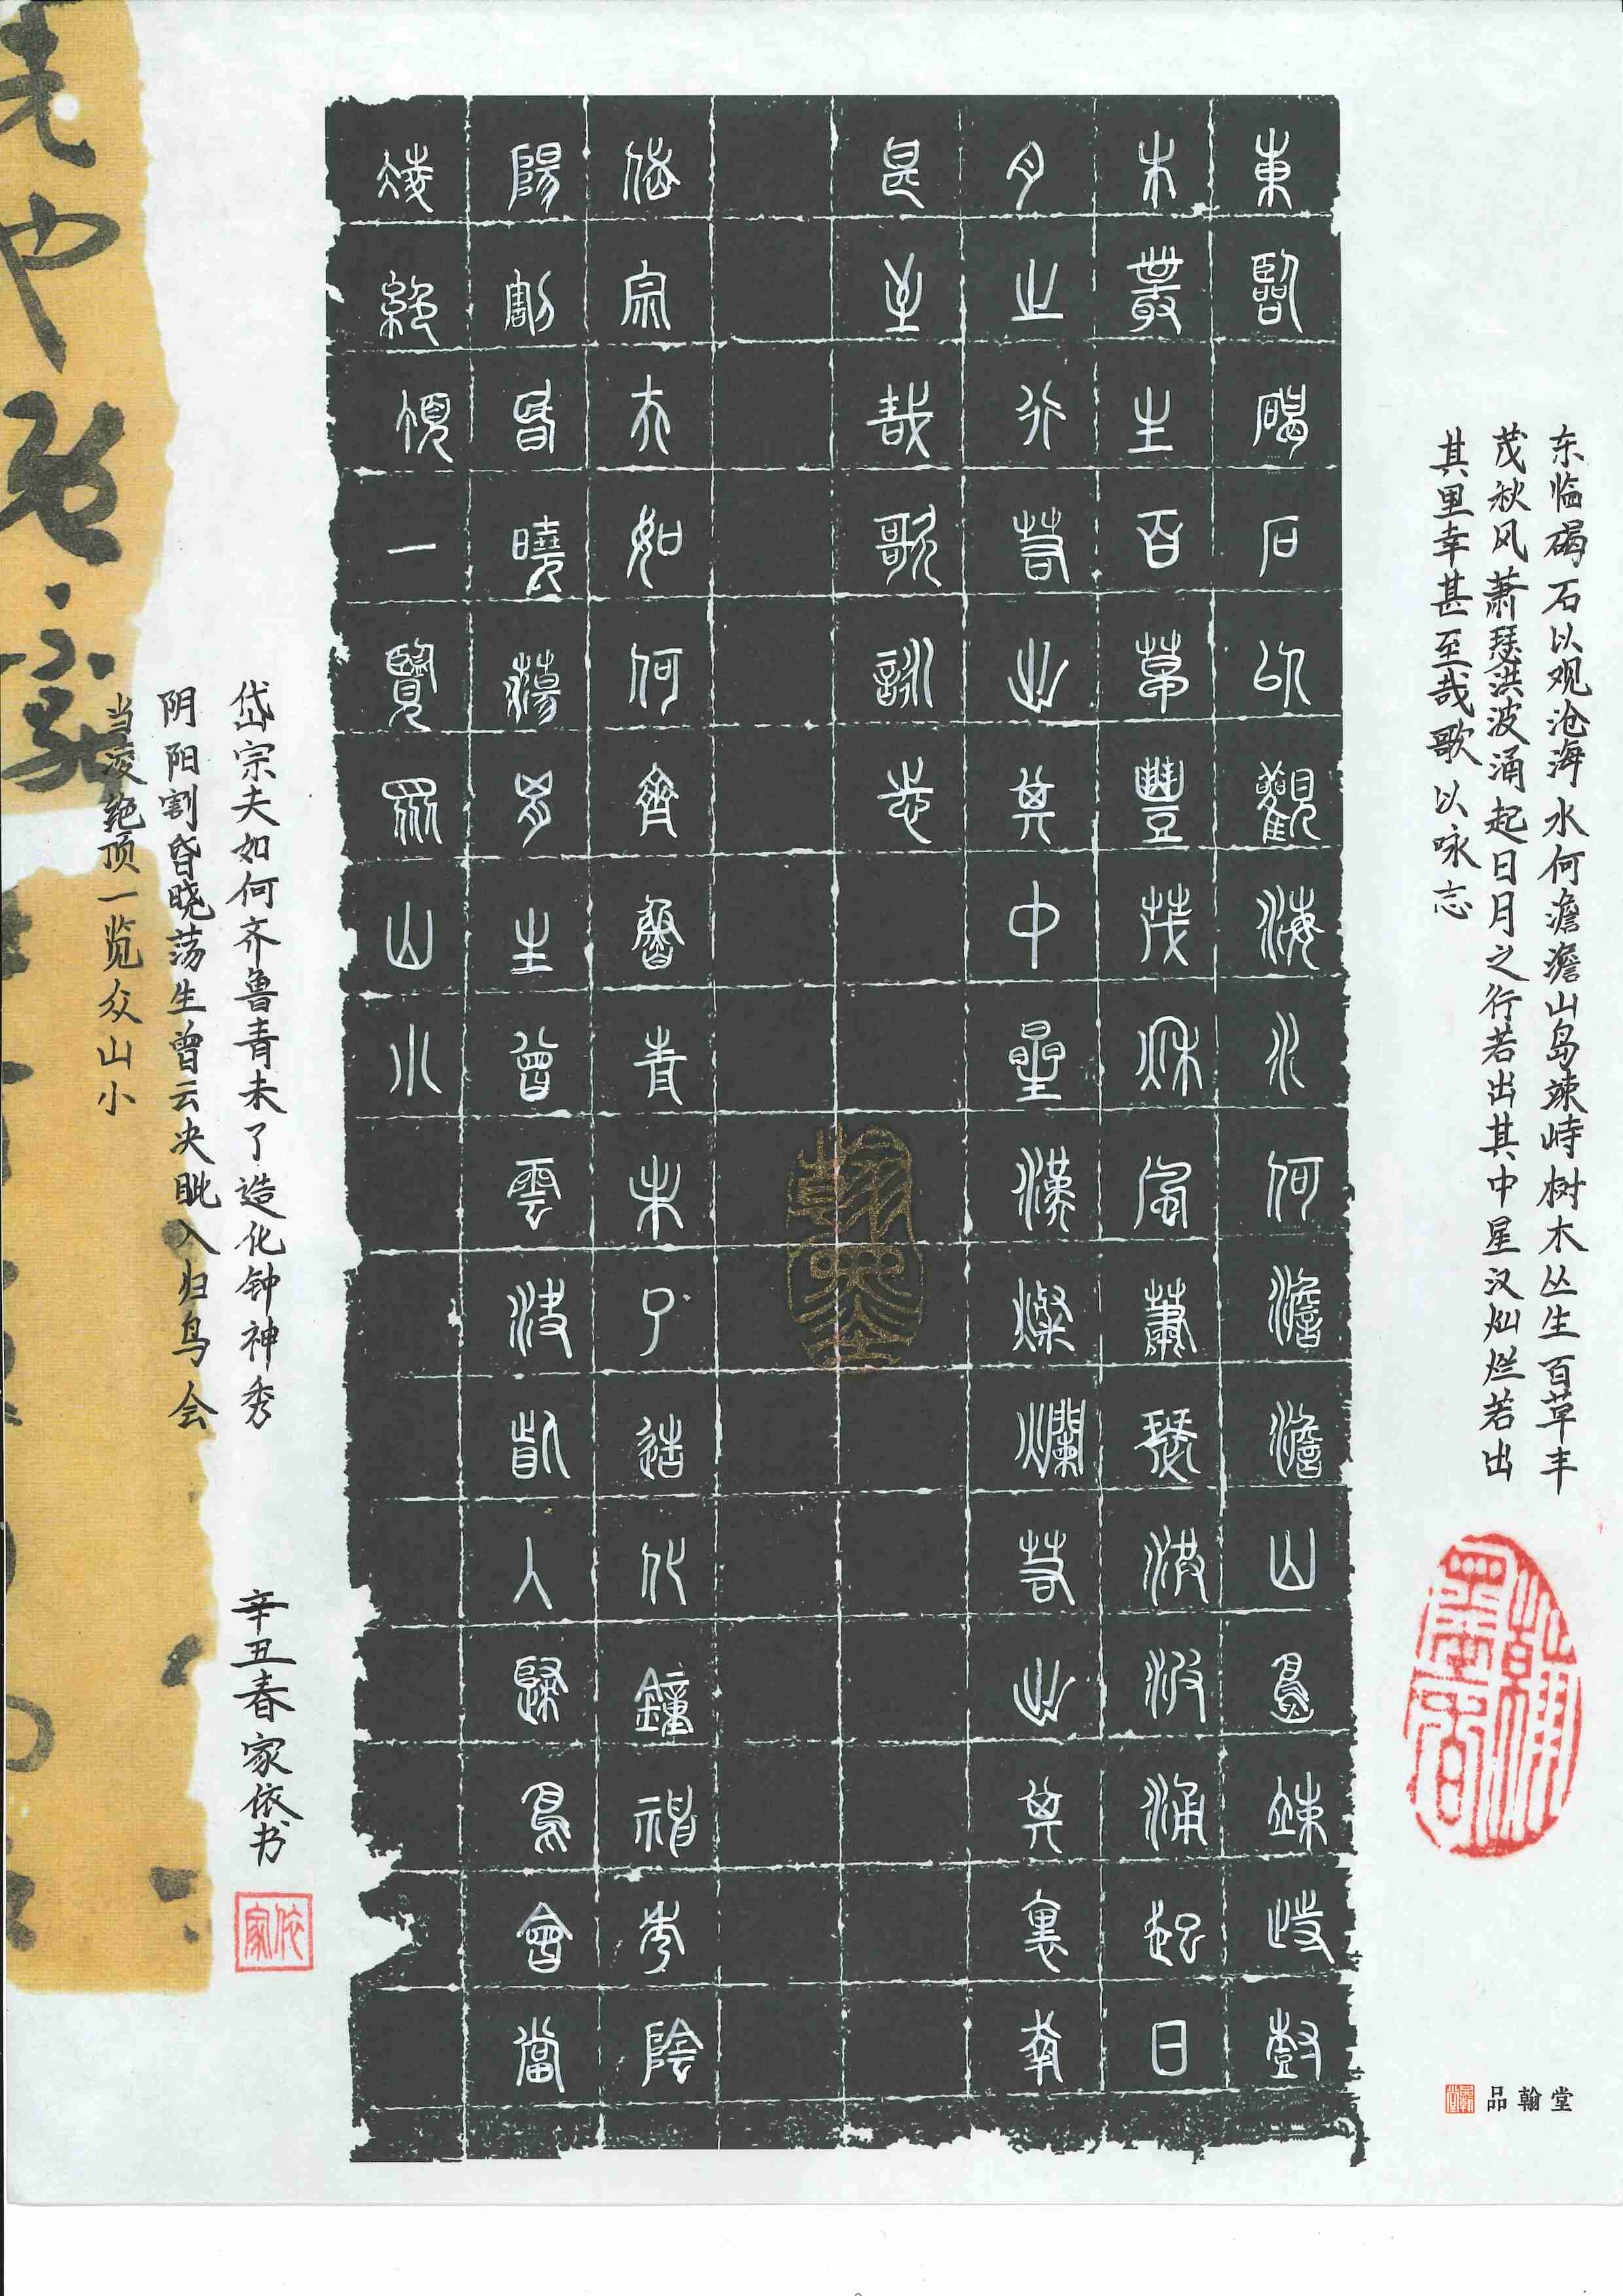 东临碣石以观沧海水何澹澹山岛竦峙树木丛生百草丰
茂秋风萧瑟洪波涌起日月之行若出其中星汉灿烂若出
其里幸甚至哉歌以咏志
品翰堂
東臨碣石以觀海水何澹澹山島竦峙樹
木叢生百草豐茂秋風蕭瑟洪波涌起日
月之行若出其中星漢燦爛若出其裏幸
甚至哉歌詠志
翰墨
岱宗夫如何齊魯青未了造化鐘神秀陰
陽割昏曉蕩胸生曾雲決眥入歸鳥會當
凌絕頂一覽眾山小
岱宗夫如何齐鲁青未了造化钟神秀
阴阳割昏晓荡生曾云决眦入归鸟会
当凌绝顶一览众山小
辛丑春家依书
家依